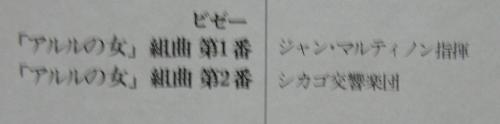 ビゼー
「アルルの女」組曲 第1番
「アルルの女」組曲 第2番
ジャン・マルティノン指揮
シカゴ交響楽団